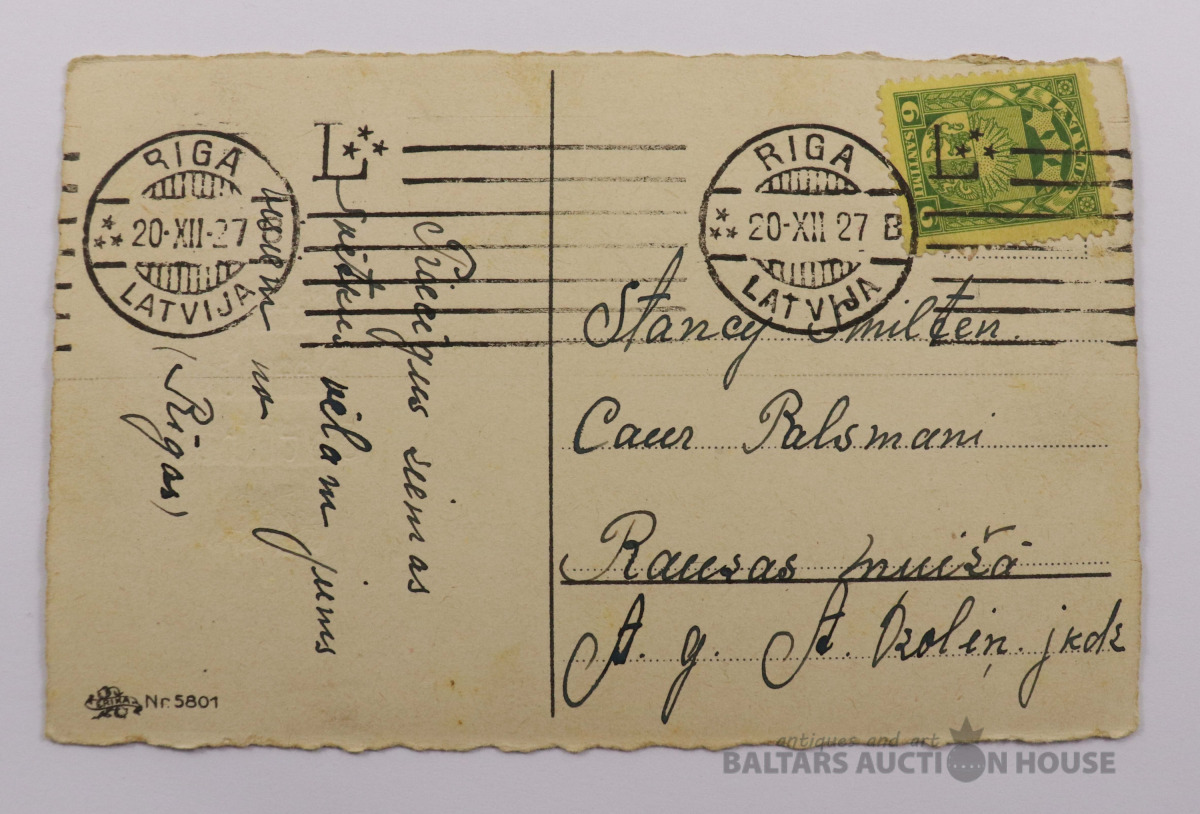 RIGA
20·XII·27
LATVIJA
L
RIGA
20-XII 27 B
LATVIJA
L
LATVIJA
6
6
Priecīgus ziemas
svētkus vēlam jums
visiem no
(Rīgas)
Stancy Smilten.
Caur Palsmani
Rauzas muižā
A. g. A. Ozoliņ. jkdz
Nr. 5801
antiques and art
BALTARS AUCTION HOUSE